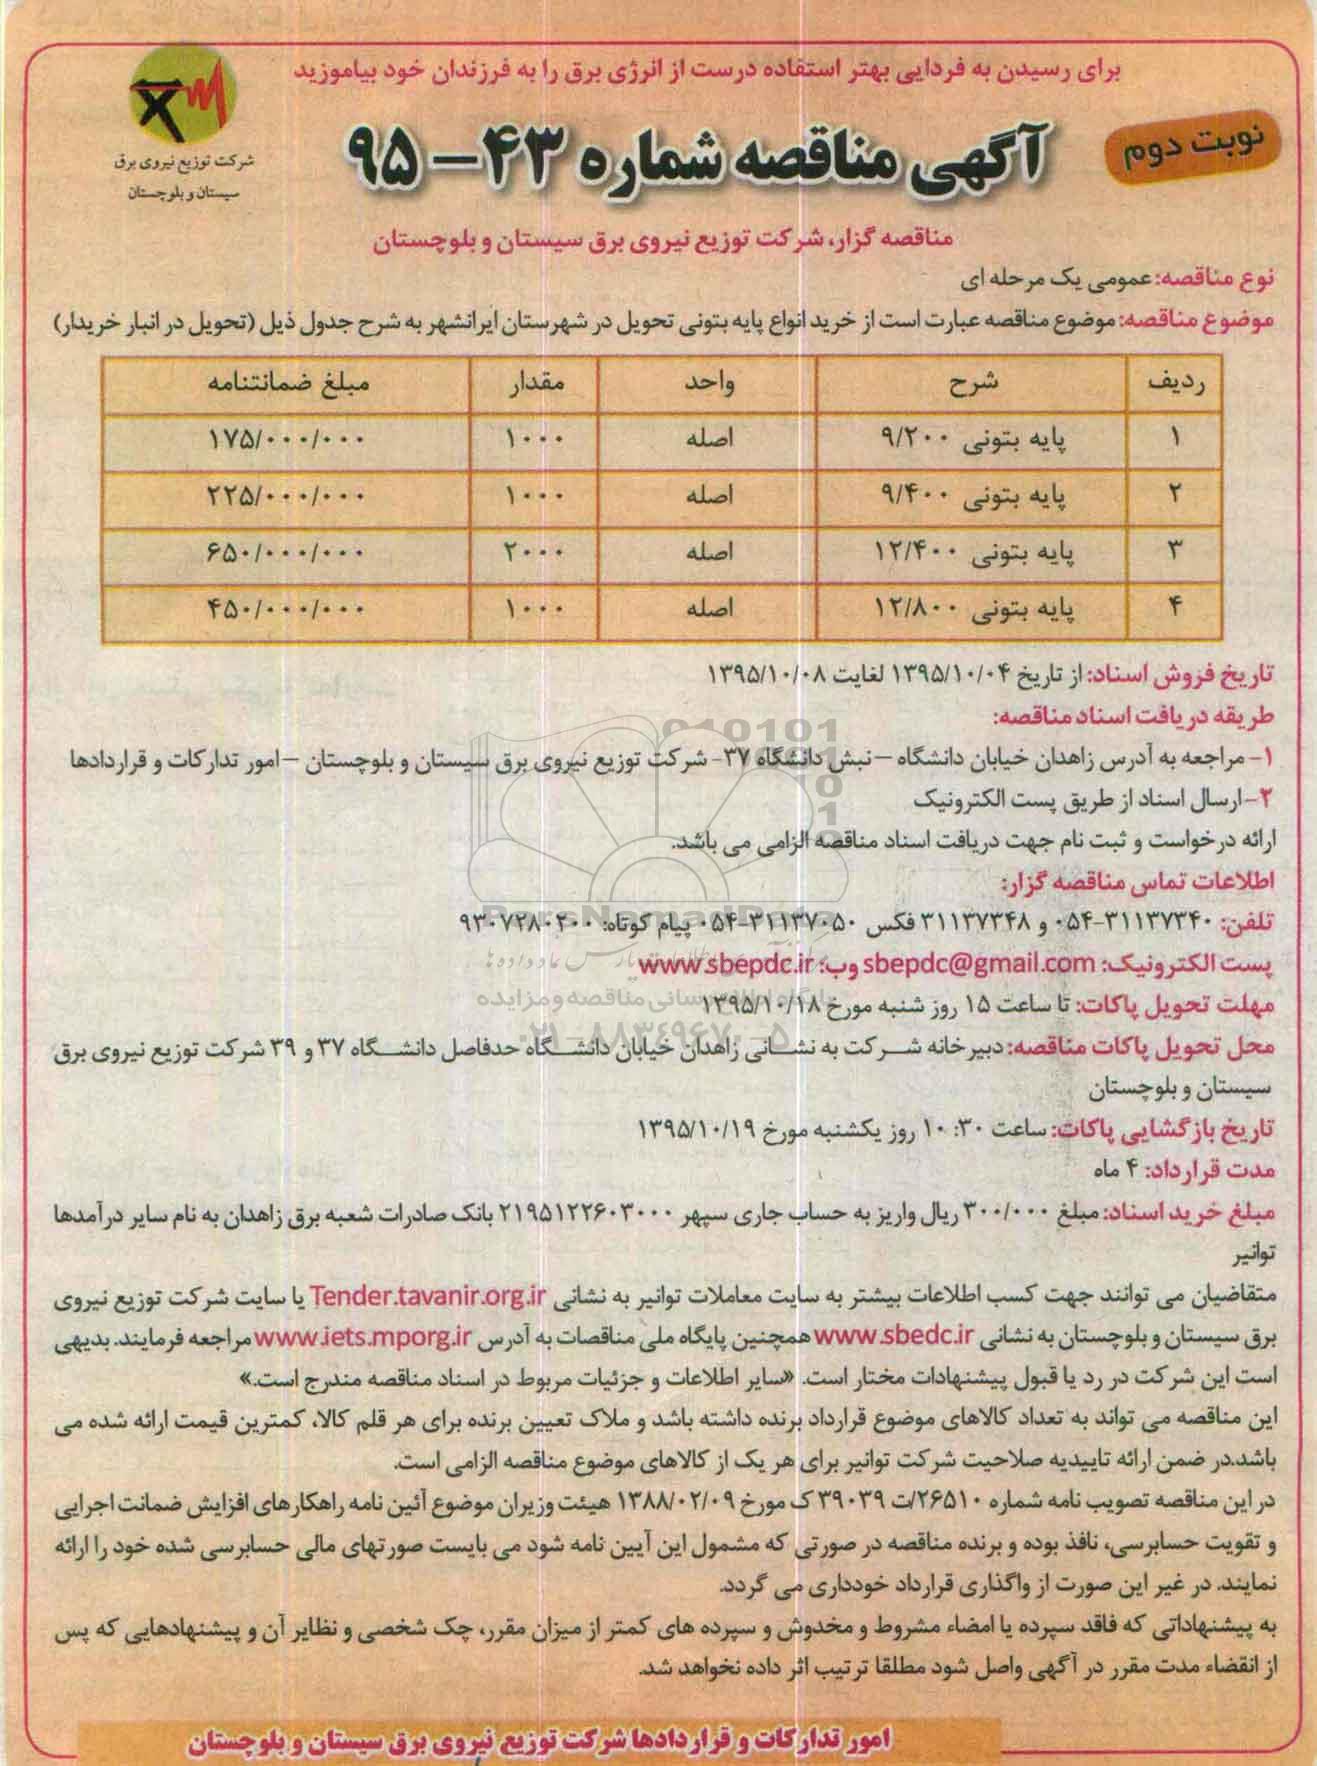 برای رسیدن به فردایی بهتر استفاده درست از انرژی برق را به فرزندان خود بیاموزید
شرکت توزیع نیروی برق
سیستان و بلوچستان
نوبت دوم
آگهی مناقصه شماره ۴۳ - ۹۵
مناقصه گزار، شرکت توزیع نیروی برق سیستان و بلوچستان
نوع مناقصه: عمومی یک مرحله ای
موضوع مناقصه: موضوع مناقصه عبارت است از خرید انواع پایه بتونی تحویل در شهرستان ایرانشهر به شرح جدول ذیل (تحویل در انبار خریدار)
ردیف شرح واحد مقدار مبلغ ضمانتنامه
۱ پایه بتونی ۹/۲۰۰ اصله ۱۰۰۰ ۱۷۵/۰۰۰/۰۰۰
۲ پایه بتونی ۹/۴۰۰ اصله ۱۰۰۰ ۲۲۵/۰۰۰/۰۰۰
۳ پایه بتونی ۱۲/۴۰۰ اصله ۲۰۰۰ ۶۵۰/۰۰۰/۰۰۰
۴ پایه بتونی ۱۲/۸۰۰ اصله ۱۰۰۰ ۴۵۰/۰۰۰/۰۰۰
تاریخ فروش اسناد: از تاریخ ۱۳۹۵/۱۰/۰۴ لغایت ۱۳۹۵/۱۰/۰۸
طریقه دریافت اسناد مناقصه:
۱- مراجعه به آدرس زاهدان خیابان دانشگاه – نبش دانشگاه ۳۷- شرکت توزیع نیروی برق سیستان و بلوچستان – امور تدارکات و قراردادها
۲- ارسال اسناد از طریق پست الکترونیک
ارائه درخواست و ثبت نام جهت دریافت اسناد مناقصه الزامی می باشد.
اطلاعات تماس مناقصه گزار:
تلفن: ۳۱۱۳۷۳۴۰-۰۵۴ و ۳۱۱۳۷۳۴۸ فکس ۳۱۱۳۷۰۵۰-۰۵۴ پیام کوتاه: ۹۳۰۷۲۸۰۲۰۰
پست الکترونیک: sbepdc@gmail.com وب: www.sbepdc.ir
مهلت تحویل پاکات: تا ساعت ۱۵ روز شنبه مورخ ۱۳۹۵/۱۰/۱۸
پایگاه اطلاع رسانی مناقصه و مزایده
۰۲۱-۸۸۳۴۹۶۷۰-۵
محل تحویل پاکات مناقصه: دبیرخانه شرکت به نشانی زاهدان خیابان دانشگاه حدفاصل دانشگاه ۳۷ و ۳۹ شرکت توزیع نیروی برق
سیستان و بلوچستان
تاریخ بازگشایی پاکات: ساعت ۱۰:۳۰ روز یکشنبه مورخ ۱۳۹۵/۱۰/۱۹
مدت قرارداد: ۴ ماه
مبلغ خرید اسناد: مبلغ ۳۰۰/۰۰۰ ریال واریز به حساب جاری سپهر ۲۱۹۵۱۲۲۶۰۳۰۰۰ بانک صادرات شعبه برق زاهدان به نام سایر درآمدها
توانیر
متقاضیان می توانند جهت کسب اطلاعات بیشتر به سایت معاملات توانیر به نشانی Tender.tavanir.org.ir یا سایت شرکت توزیع نیروی
برق سیستان و بلوچستان به نشانی www.sbedc.ir همچنین پایگاه ملی مناقصات به آدرس www.iets.mporg.ir مراجعه فرمایند. بدیهی
است این شرکت در رد یا قبول پیشنهادات مختار است. «سایر اطلاعات و جزئیات مربوط در اسناد مناقصه مندرج است.»
این مناقصه می تواند به تعداد کالاهای موضوع قرارداد برنده داشته باشد و ملاک تعیین برنده برای هر قلم کالا، کمترین قیمت ارائه شده می
باشد.در ضمن ارائه تاییدیه صلاحیت شرکت توانیر برای هر یک از کالاهای موضوع مناقصه الزامی است.
در این مناقصه تصویب نامه شماره ۲۶۵۱۰/ت ۳۹۰۳۹ ک مورخ ۱۳۸۸/۰۲/۰۹ هیئت وزیران موضوع آئین نامه راهکارهای افزایش ضمانت اجرایی
و تقویت حسابرسی، نافذ بوده و برنده مناقصه در صورتی که مشمول این آیین نامه شود می بایست صورتهای مالی حسابرسی شده خود را ارائه
نمایند. در غیر این صورت از واگذاری قرارداد خودداری می گردد.
به پیشنهاداتی که فاقد سپرده یا امضاء مشروط و مخدوش و سپرده های کمتر از میزان مقرر، چک شخصی و نظایر آن و پیشنهادهایی که پس
از انقضاء مدت مقرر در آگهی واصل شود مطلقا ترتیب اثر داده نخواهد شد.
امور تدارکات و قراردادها شرکت توزیع نیروی برق سیستان و بلوچستان